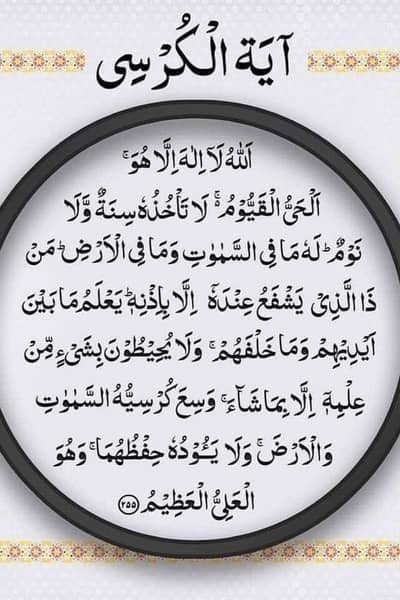 آيَةُ الْكُرْسِى
اَللّٰهُ لَاۤ اِلٰهَ اِلَّا هُوَۚ
اَلْحَیُّ الْقَیُّوْمُ۬ۚ لَا تَاْخُذُهٗ سِنَةٌ وَّلَا
نَوْمٌؕ لَهٗ مَا فِی السَّمٰوٰتِ وَمَا فِی الْاَرْضِؕ مَنْ
ذَا الَّذِیْ یَشْفَعُ عِنْدَهٗۤ اِلَّا بِاِذْنِهٖؕ یَعْلَمُ مَا بَیْنَ
اَیْدِیْهِمْ وَمَا خَلْفَهُمْۚ وَلَا یُحِیْطُوْنَ بِشَیْءٍ مِّنْ
عِلْمِهٖۤ اِلَّا بِمَا شَآءَۚ وَسِعَ كُرْسِیُّهُ السَّمٰوٰتِ
وَالْاَرْضَۚ وَلَا یَـُٔوْدُهٗ حِفْظُهُمَاۚ وَهُوَ
الْعَلِیُّ الْعَظِیْمُ ﴿۲۵۵﴾